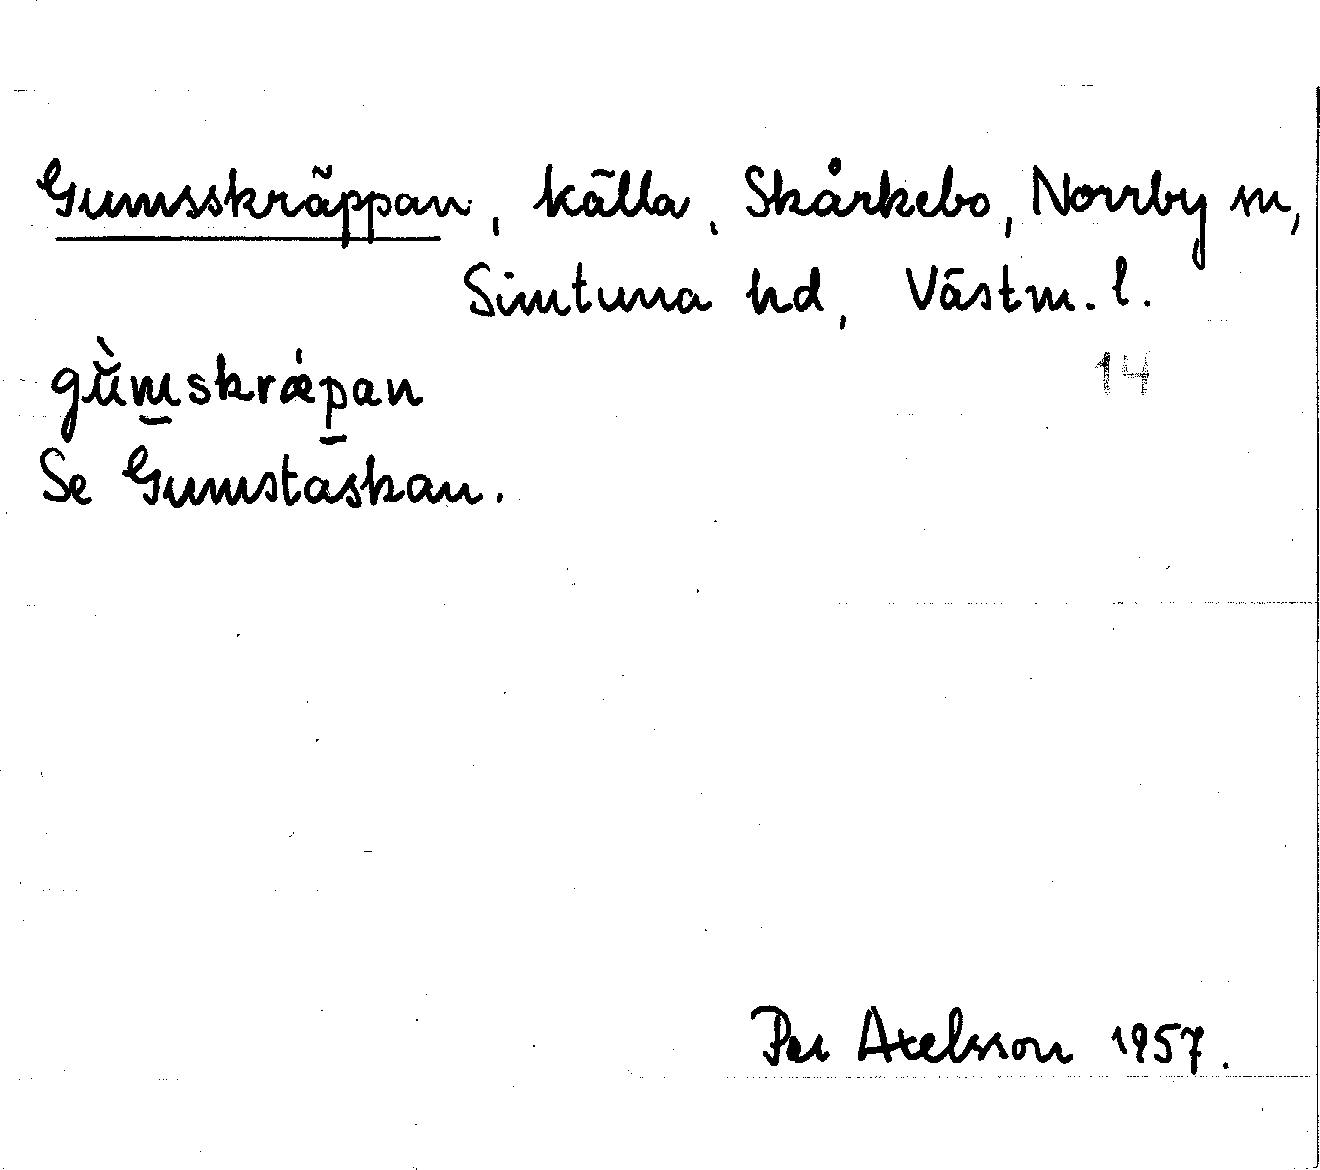 Gumsskräppan, källa, Skårkebo, Norrby sn,
Simtuna hd, Västm. l.
14
gǜm̲skrǽp̲an
Se Gumstaskan.
Per Axelsson 1957.